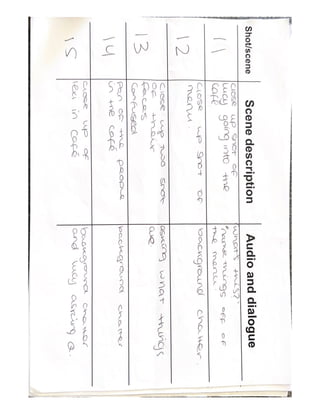 Shot/scene
Scene description
Audio and dialogue
11
close up shot of
lucy going into the
café
"what's this?"
"name things off of
the menu
12
close up shot of
menu
background chatter.
13
close up two shot
of their
faces
confused
asking what things
are
14
pan of the people
in the café
background chatter
15
close up of
lexi in café
background chatter
and lucy asking a